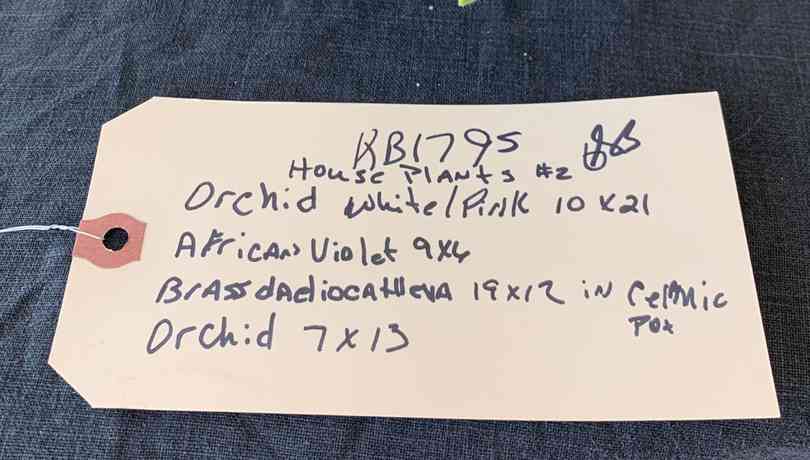 KB1795
House Plants #2
Orchid White/Pink 10 x 21
African Violet 9x6
BrassdAdiocattleva 19x12 in Celmic
Pot
Orchid 7 x 13